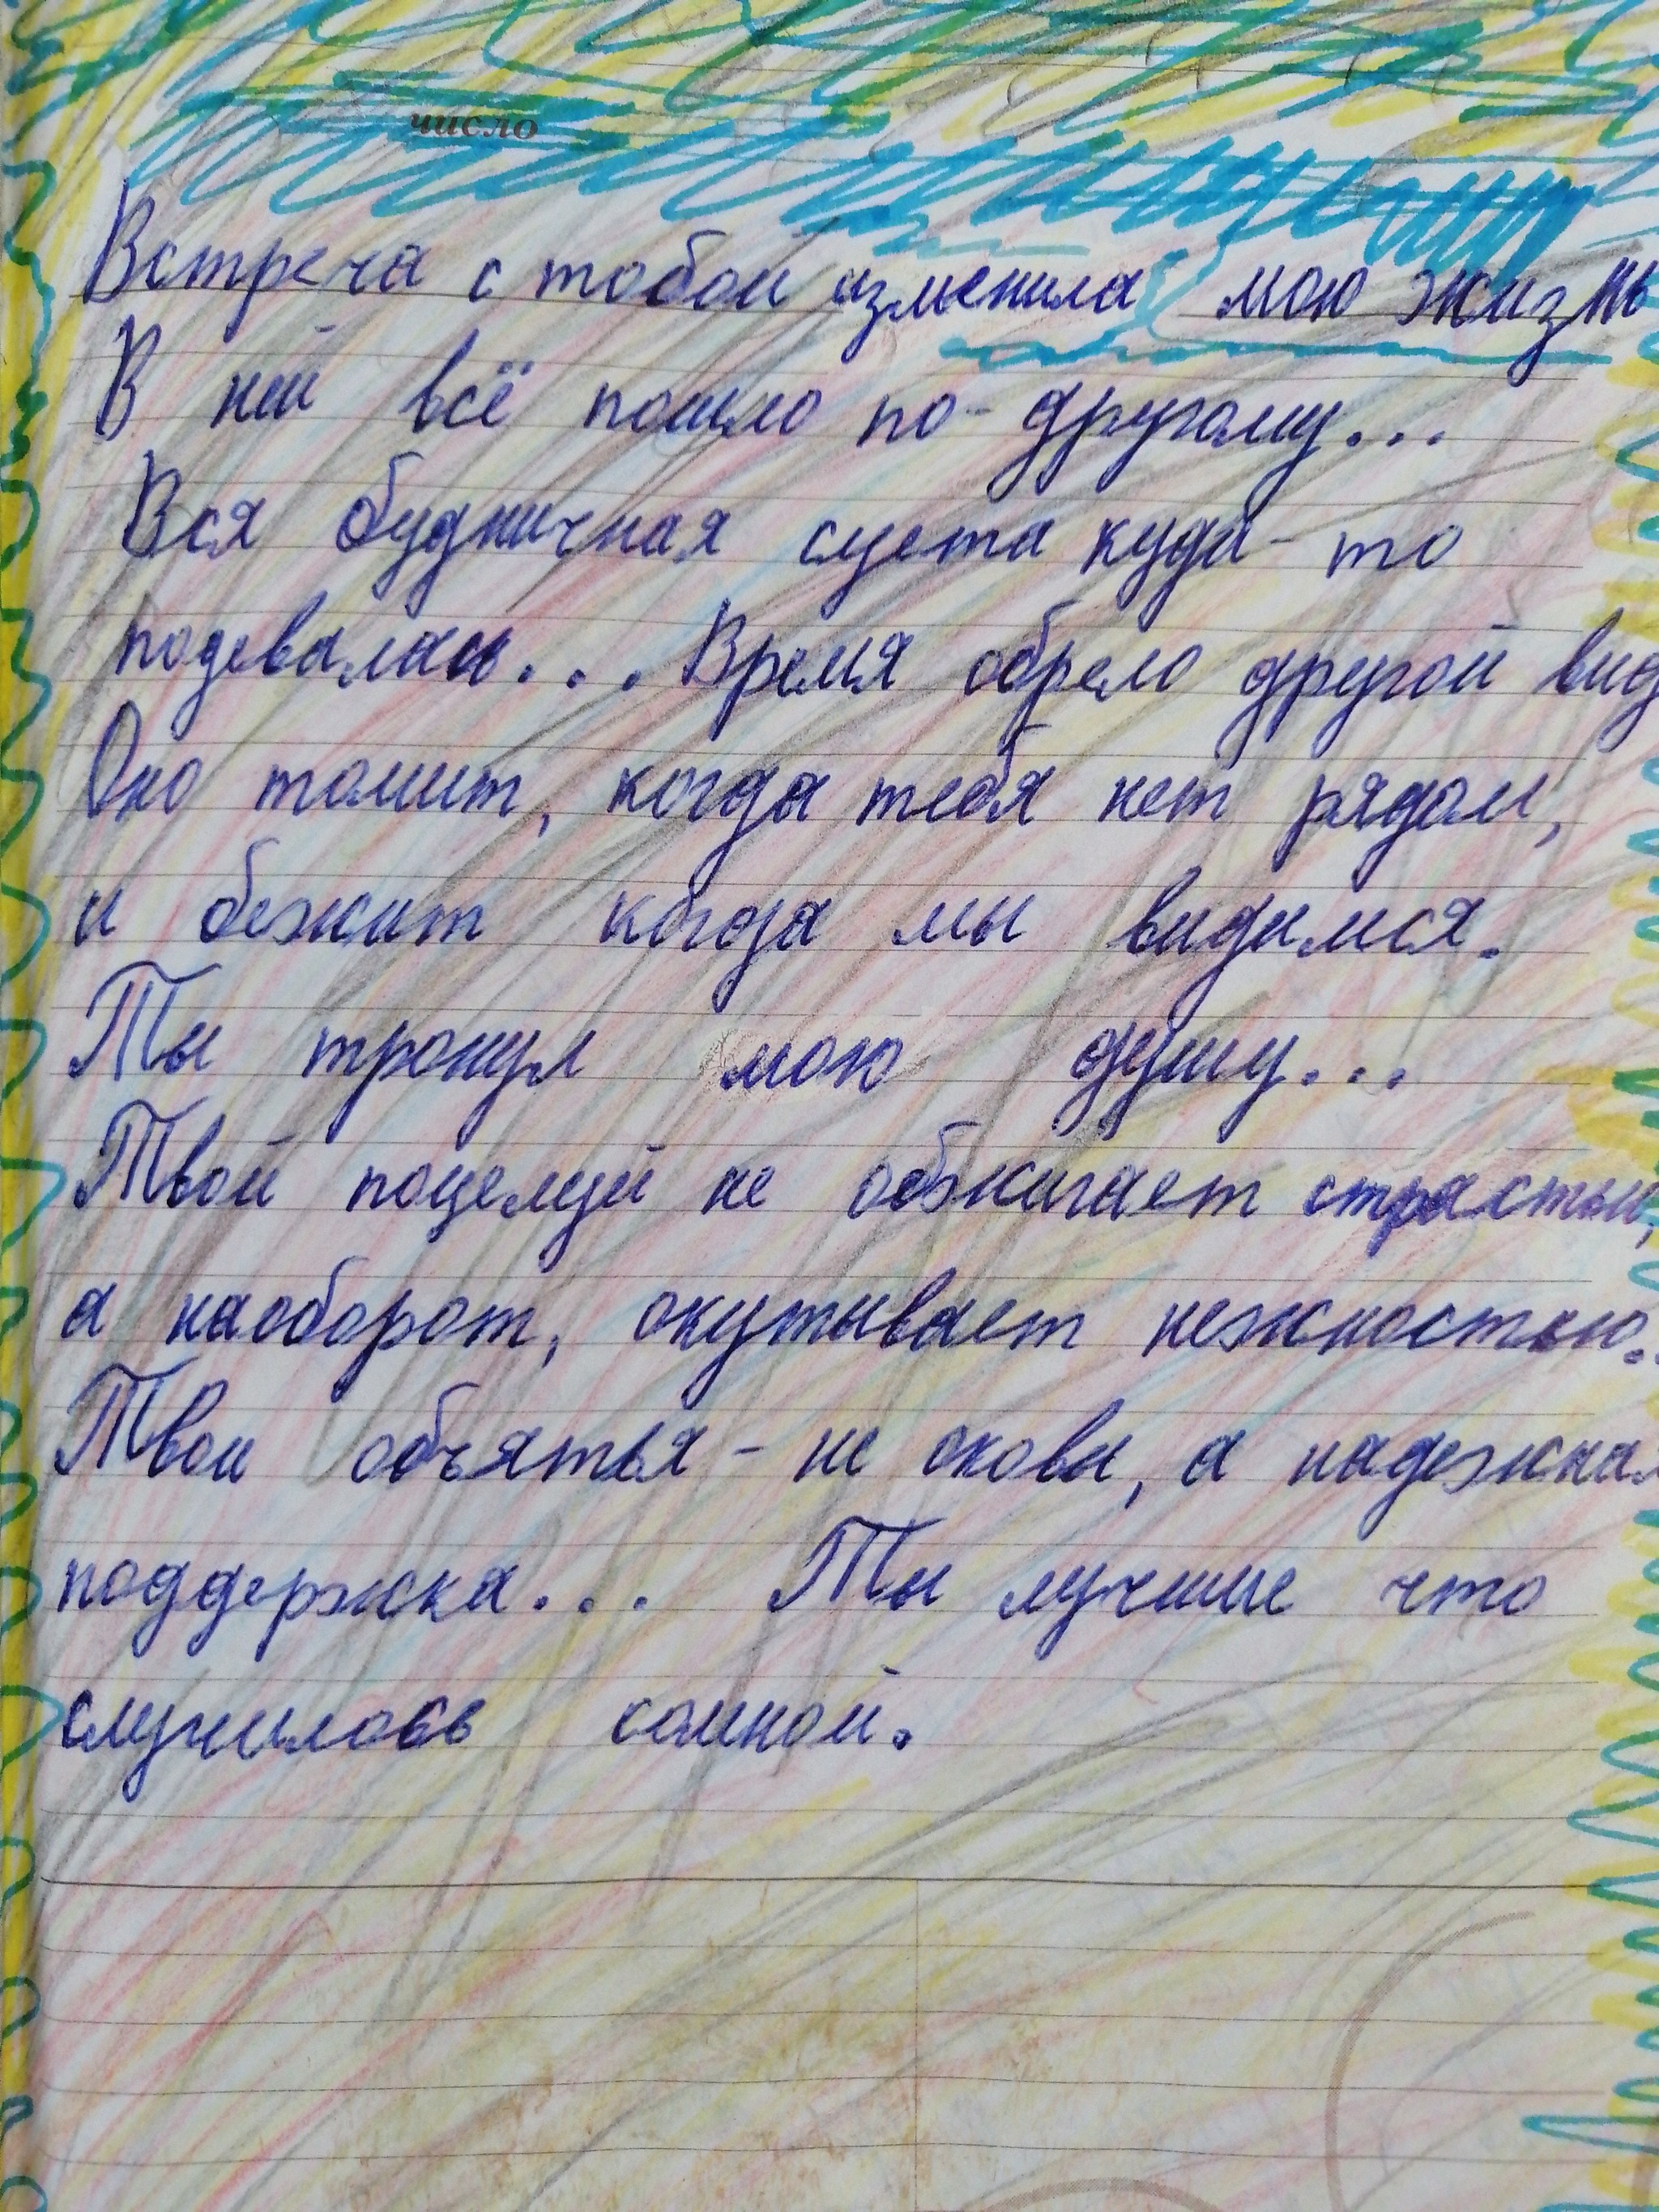 число
Встреча с тобой изменила мою жизнь
В ней всё пошло по-другому...
Вся будничная суета куда-то
подевалась... Время обрело другой вид
Оно томит, когда тебя нет рядом,
и бежит когда мы видимся.
Ты тронул мою душу...
Твой поцелуй не обжигает страстью,
а наоборот, окутывает нежностью..
Твои объятья - не оковы, а надежная
поддержка... Ты лучшие что
случилось сомной.